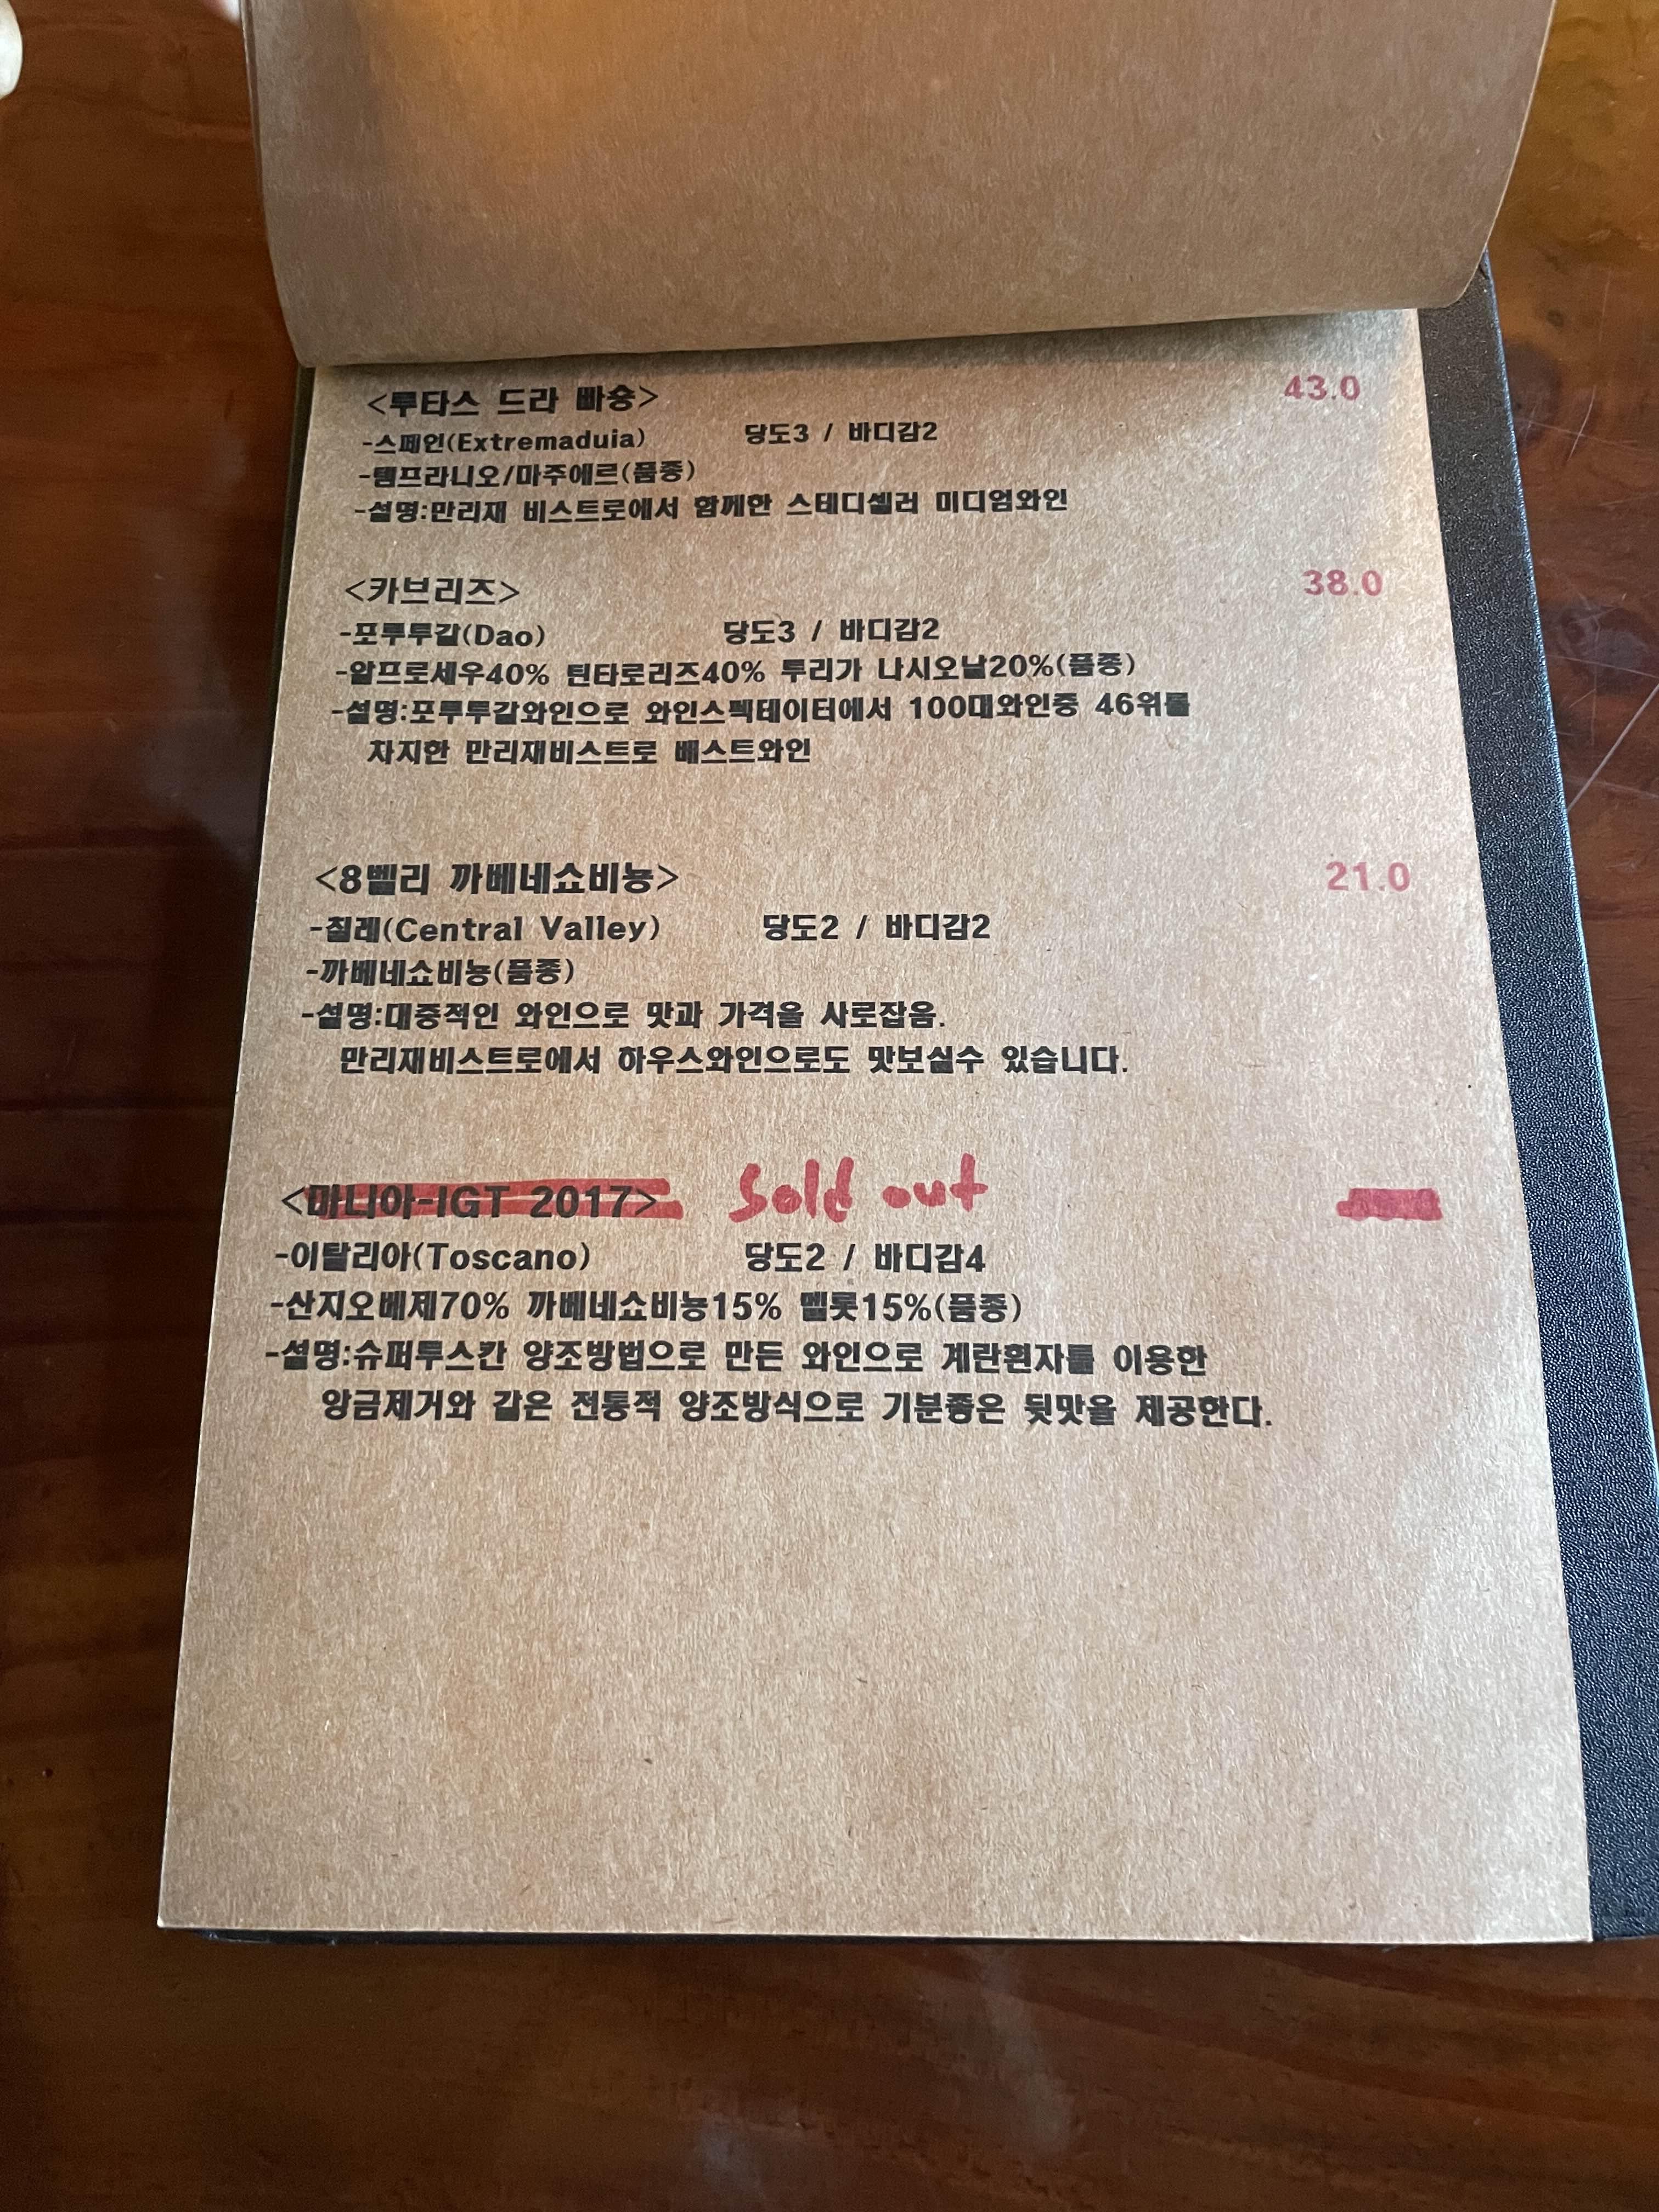 <루타스 드라 빠숑> 43.0
-스페인(Extremaduia) 당도3 / 바디감2
-템프라니오/마주에르(품종)
-설명:만리재 비스트로에서 함께한 스테디셀러 미디엄와인
<카브리즈> 38.0
-포루투갈(Dao) 당도3 / 바디감2
-알프로세우40% 틴타로리즈40% 투리가 나시오날20%(품종)
-설명:포루투갈와인으로 와인스펙테이터에서 100대와인중 46위를
차지한 만리재비스트로 베스트와인
<8벨리 까베네쇼비뇽> 21.0
-칠레(Central Valley) 당도2 / 바디감2
-까베네쇼비뇽(품종)
-설명:대중적인 와인으로 맛과 가격을 사로잡음.
만리재비스트로에서 하우스와인으로도 맛보실수 있습니다.
<마니아-IGT 2017> Sold out
-이탈리아(Toscano) 당도2 / 바디감4
-산지오베제70% 까베네쇼비뇽15% 멜롯15%(품종)
-설명:슈퍼투스칸 양조방법으로 만든 와인으로 계란흰자를 이용한
앙금제거와 같은 전통적 양조방식으로 기분좋은 뒷맛을 제공한다.